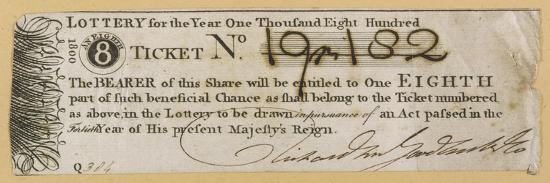 LOTTERY for the Year One Thousand Eight Hundred
1800
AN EIGHTH
8
TICKET No. 19m182
The BEARER of this Share will be entitled to One EIGHTH
part of such beneficial Chance as shall belong to the Ticket numbered
as above, in the Lottery to be drawn in pursuance of an Act passed in the
Fortieth Year of His present Majesty's Reign.
Q 384